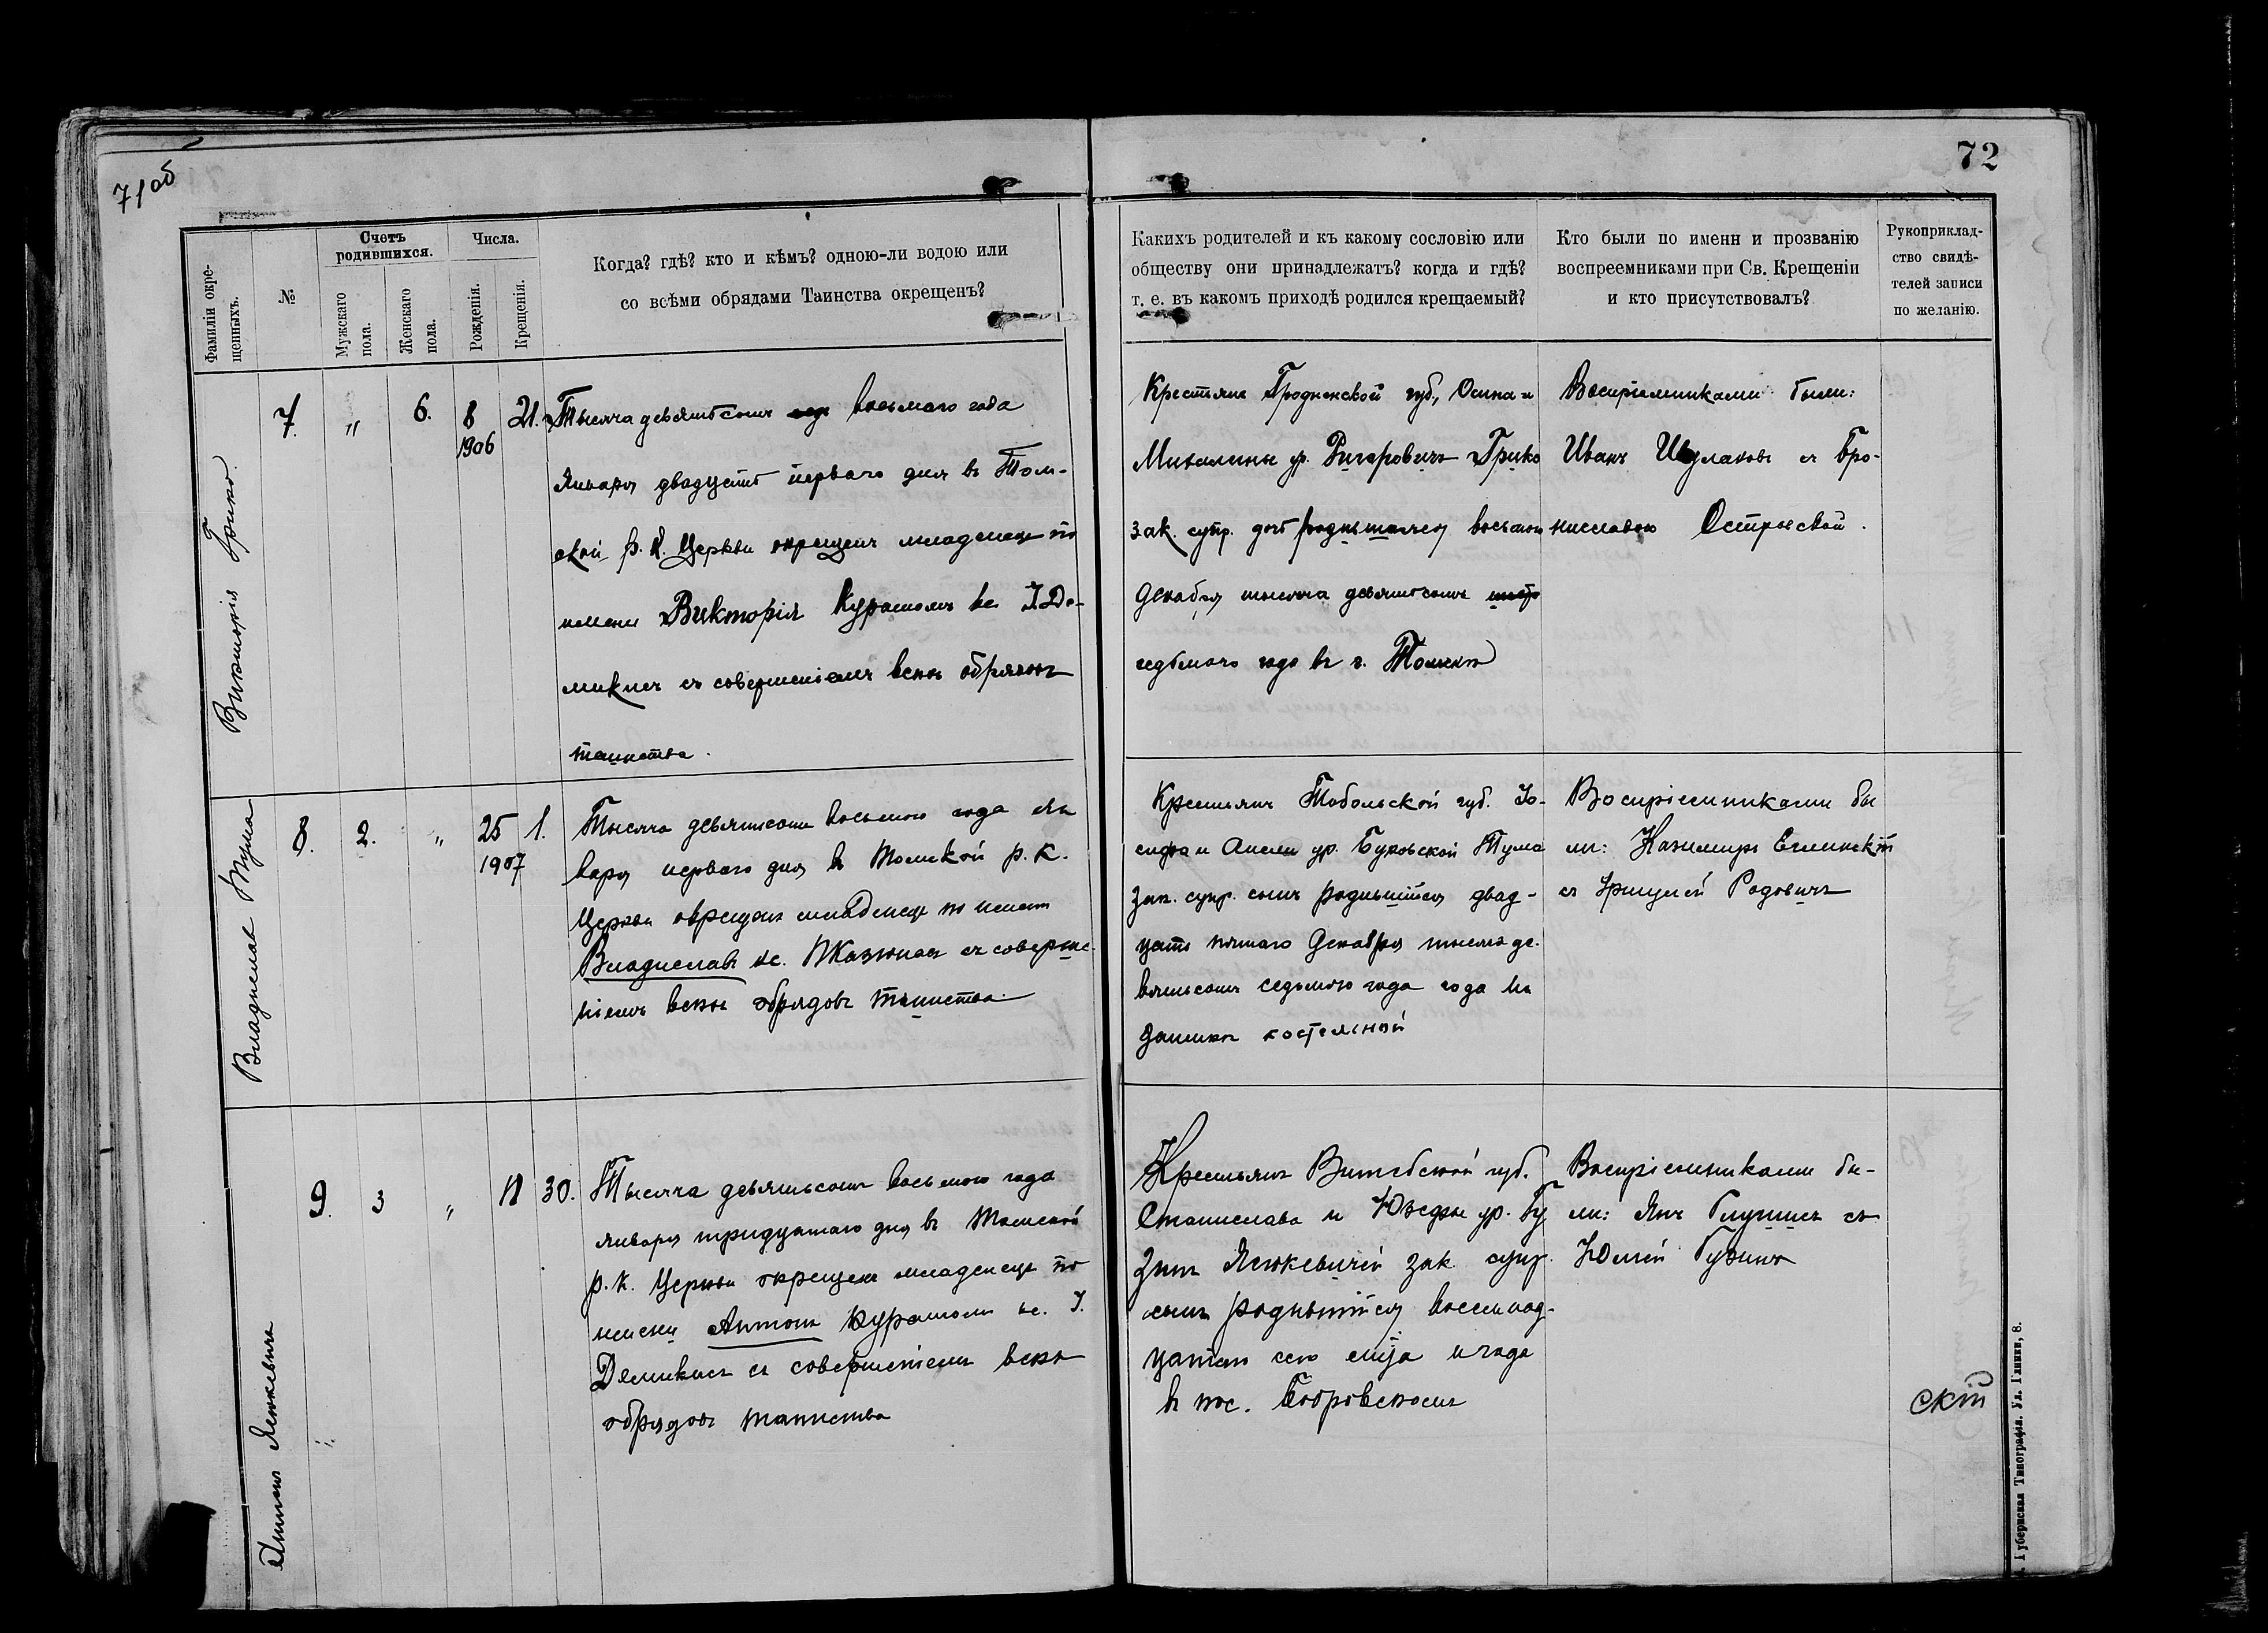 71 об
72
Фамиліи окре-
щенныхъ.
№
Счетъ
родившихся.
Мужскаго
пола.
Женскаго
пола.
Числа.
Рожденія.
Крещенія.
Когда? гдѣ? кто и кѣмъ? одною-ли водою или
со всѣми обрядами Таинства окрещенъ?
Каихъ родителей и къ какому сословію или
обществу они принадлежатъ? когда и гдѣ?
т. е. въ какомъ приходѣ родился крещаемый?
Кто были по имени и прозванію
воспреемниками при Св. Крещеніи
и кто присутствовалъ?
Рукоприклад-
ство свидѣ-
телей записи
по желанію.
Викторія Грико.
7.
"
6.
8
1906
21.
Тысяча девятьсотъ восьмого года
Января двадцать перваго дня въ Том-
ской р. к. Церкви окрещенъ младенецъ по
имени Викторія Куратомъ кс. І. Де-
микисъ съ совершеніемъ всѣхъ обрядовъ
таинства.
Крестьянъ Гродненской губ., Осипа и
Михалины ур. Григоровичъ Грико
зак. супр. дочь родившаяся восьмого
Декабря тысяча девятьсотъ
седьмого года въ г. Томскѣ
Воспріемниками были:
Иванъ съ Бро-
ниславою Островской.
Владиславъ Тума
8.
2.
"
25
1907
1.
Тысяча девятьсотъ восьмого года Ян
варя перваго дня въ Томской р. к.
Церкви окрещенъ младенецъ по имени
Владиславъ кс. съ соверше-
ніемъ всѣхъ обрядовъ таинства.
Крестьянъ Тобольской губ. Іо-
сифа и Анели ур. Буковской Тума
зак. супр. сынъ родившійся двад-
цать пятаго Декабря тысяча де-
вятьсотъ седьмого года года въ
костельной
Воспріемниками бы
ли: Казимиръ
съ Родовичъ
Антонъ Яснкевичъ
9.
3
"
18
30.
Тысяча девятьсотъ восьмого года
января тридцатаго дня въ Томской
р. к. Церкви окрещенъ младенецъ по
имени Антонъ Куратомъ кс. І.
Демикисъ съ совершеніемъ всѣхъ
обрядовъ таинства
Крестьянъ Витебской губ.
Станислава и Юзефы ур. Гу
зинъ зак. супр.
сынъ родившійся восемнад-
цатаго сего м-ца и года
въ пос. Бобровскомъ
Воспріемниками бы-
ли: Янъ съ
Юліей Гузинъ
скій
Губернская Типографія. Ул. Гл., 8.